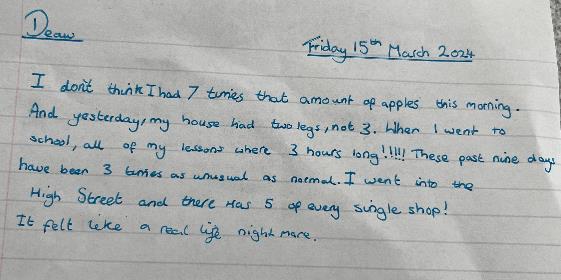 Dean
Friday 15th March 2024
I don't think I had 7 times that amount of apples this morning.
And yesterday, my house had two legs, not 3. When I went to
school, all of my lessons where 3 hours long!!!!! These past nine days
have been 3 times as unusual as normal. I went into the
High Street and there was 5 of every single shop!
It felt like a real life nightmare.